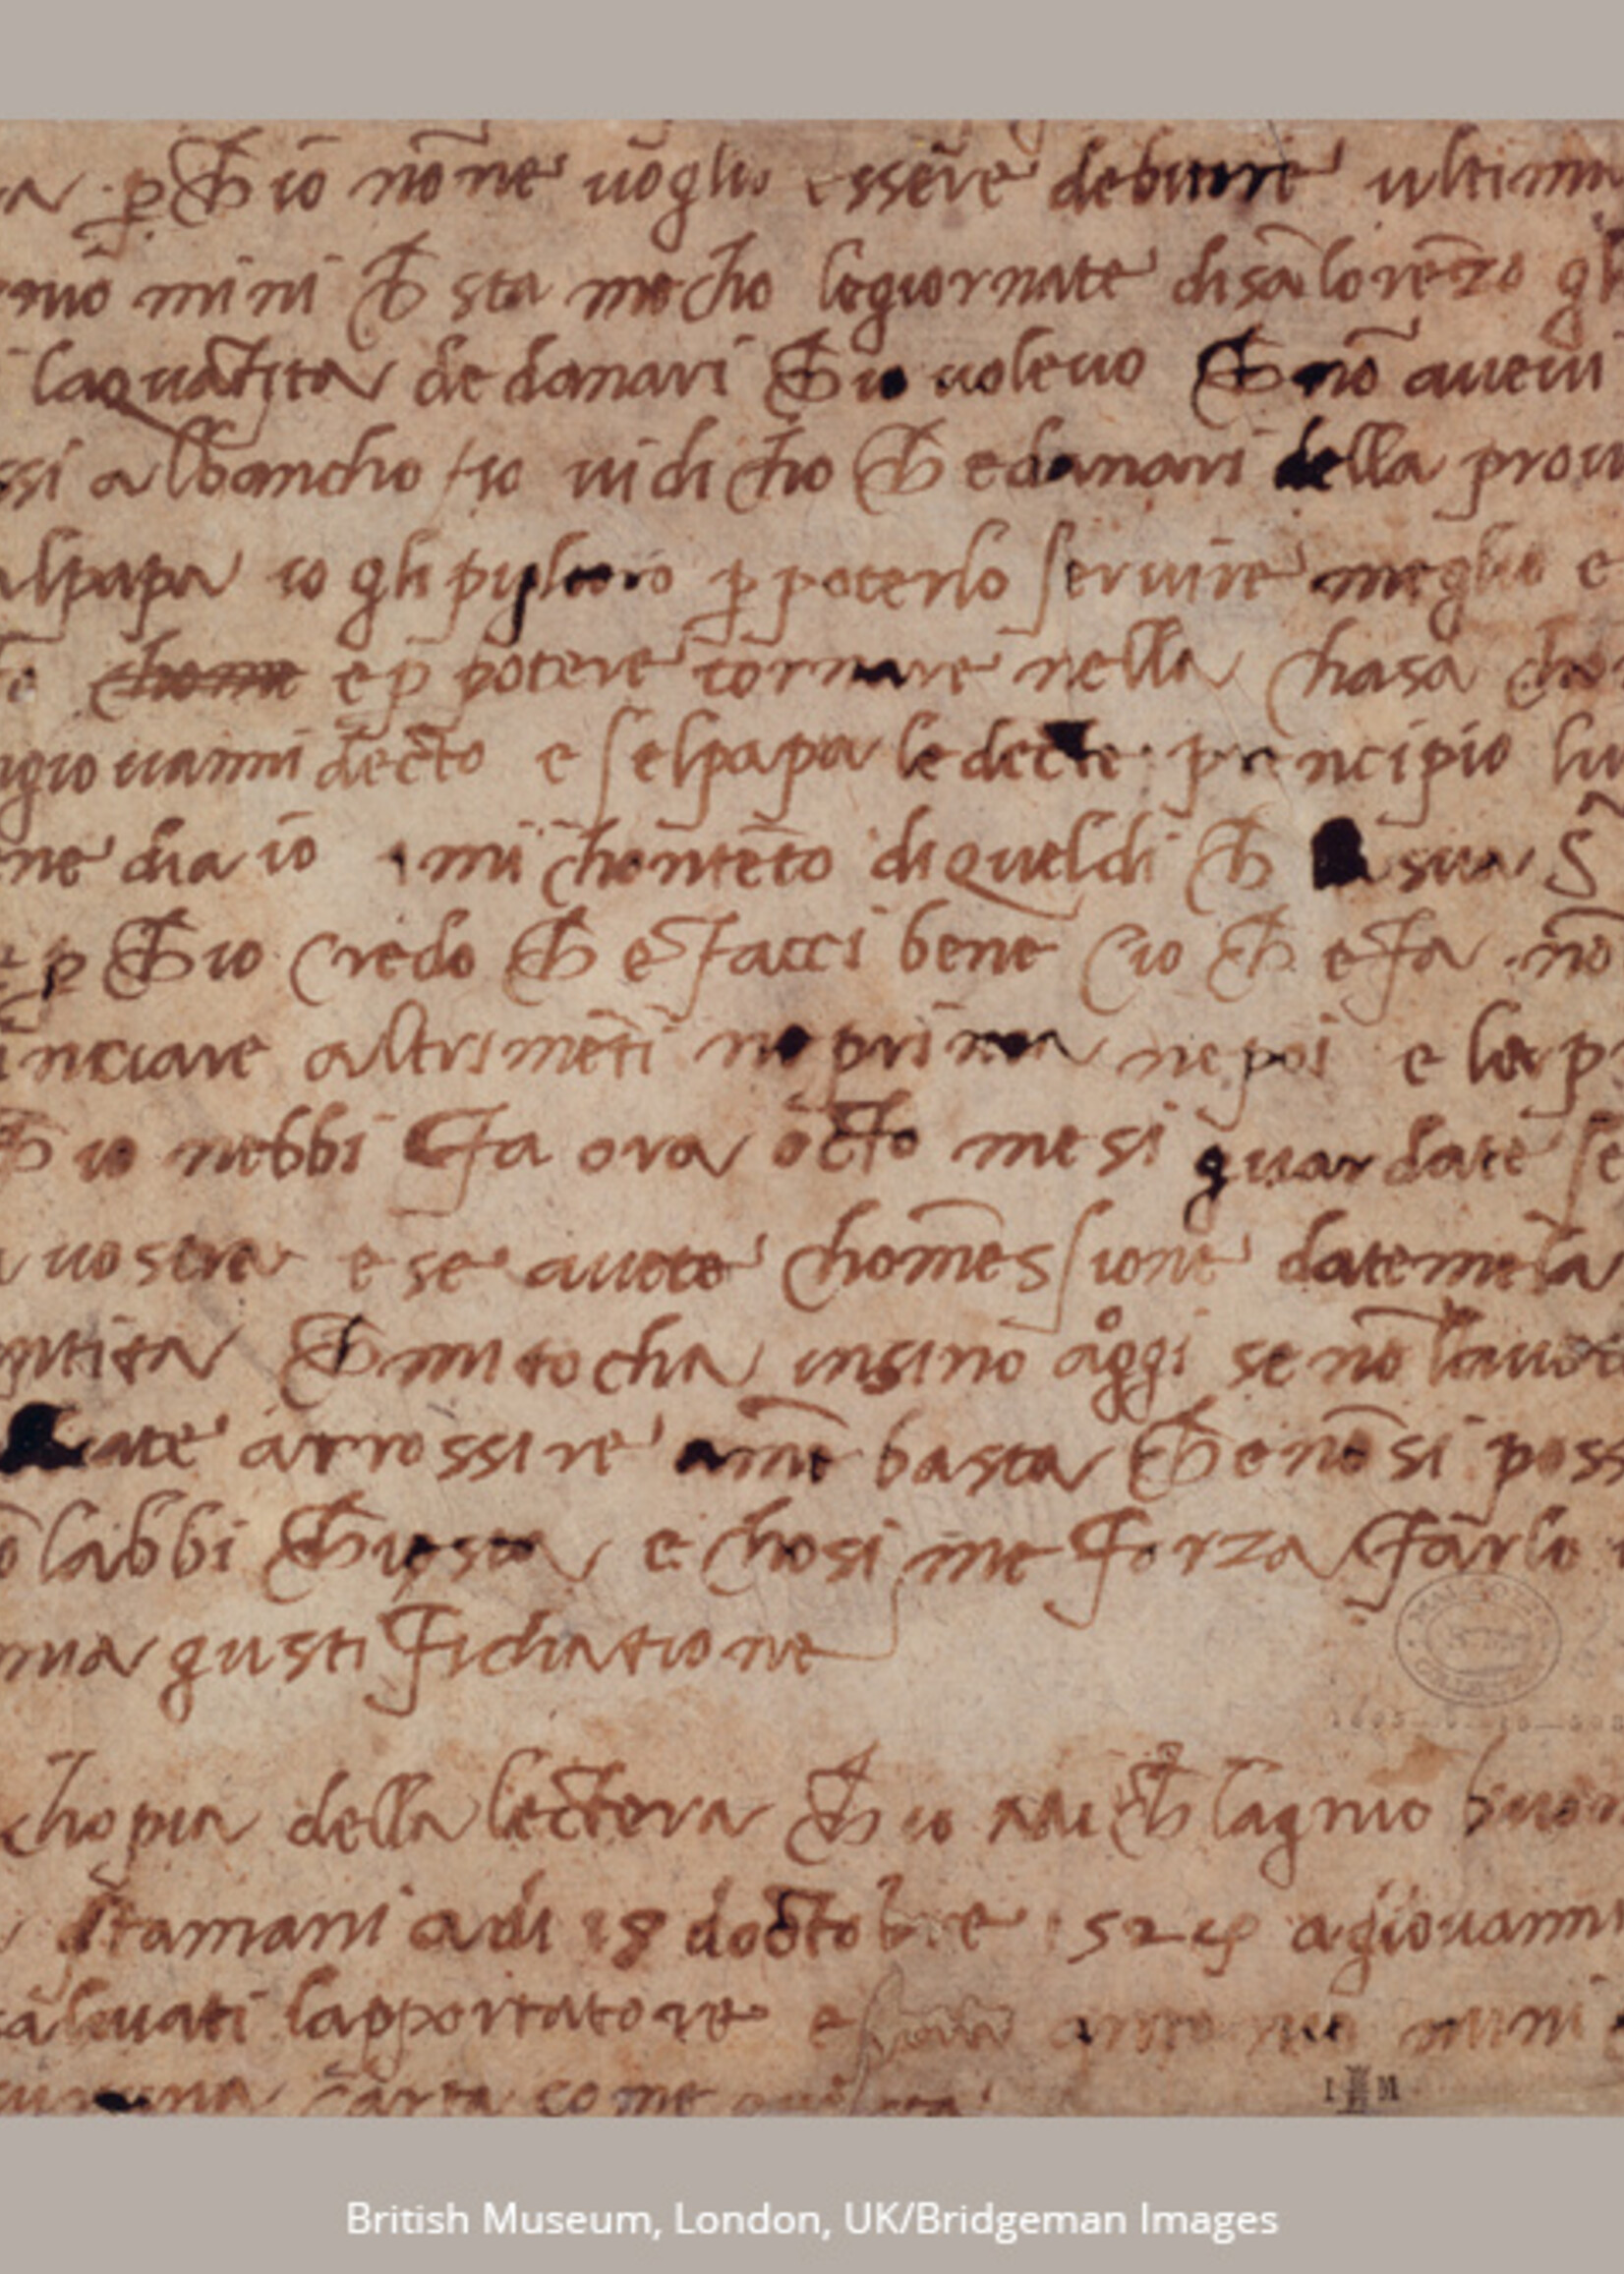 p ch io nō ne uoglio essere debitore ultima
mini ch sta mecho le giornate di sā lorēzo
la quātita de danari ch io uolevo ch nō aueui
ssi al bancho io ui dicho ch e danari della
al papa io gli pigliero p poterlo servire meglio e
e p potere tornare nella chasa
giouanni decto e se l papa le decte principio
ne dia io mi chontēto di quel di ch sua S
p ch io credo ch e facci bene cio ch e fa nō
inciare altrimēti ne prima ne poi e la
ch io nebbi fa ora octo mesi guardate se
uostra e se auete chomessione datemela
ch mi tocha insino oggi se nō
arrossire a me basta ch e nō si
labbi chiesta e chosi me forza farlo
mia gustifichatione
chopia della lectera ch io Michelagniolo
stamani a di 18 doctobre 1524 a giouanni
salviati lapportatore e antonio mini
carta come
I M
British Museum, London, UK/Bridgeman Images